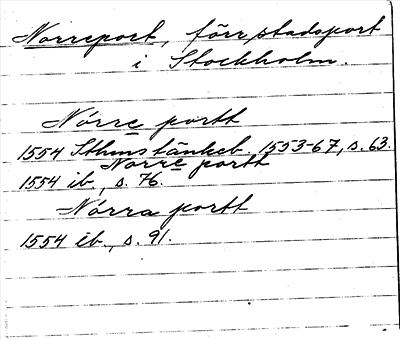 Norreport, förr stadsport
i Stockholm.
Nórre portt
1554 Sthmstänkeb. 1553-67, s. 63.
Norre portt
1554 ib., s. 76.
Nórra portt
1554 ib., s. 91.